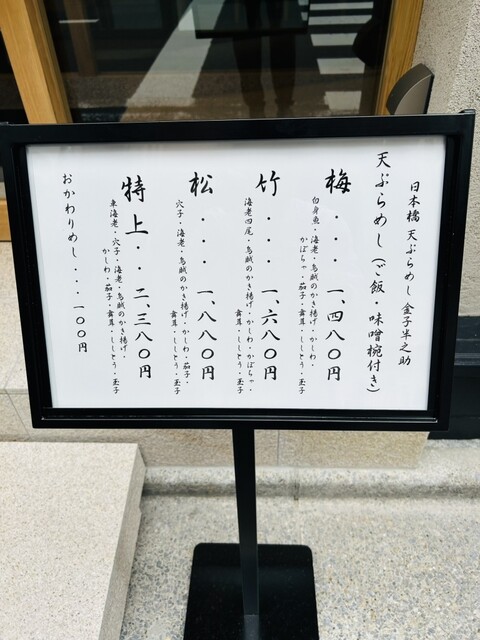 日本橋 天ぷらめし 金子半之助
天ぷらめし（ご飯・味噌椀付き）
梅・・・一、四八〇円
白身魚・海老・烏賊のかき揚げ・かしわ・
かぼちゃ・茄子・舞茸・ししとう・玉子
竹・・・一、六八〇円
海老四尾・烏賊のかき揚げ・かしわ・かぼちゃ・
舞茸・ししとう・玉子
松・・・一、八八〇円
穴子・海老・烏賊のかき揚げ・かしわ・茄子・
舞茸・ししとう・玉子
特上・・二、三八〇円
車海老・穴子・海老・烏賊のかき揚げ・
かしわ・茄子・舞茸・ししとう・玉子
おかわりめし・・・・一〇〇円